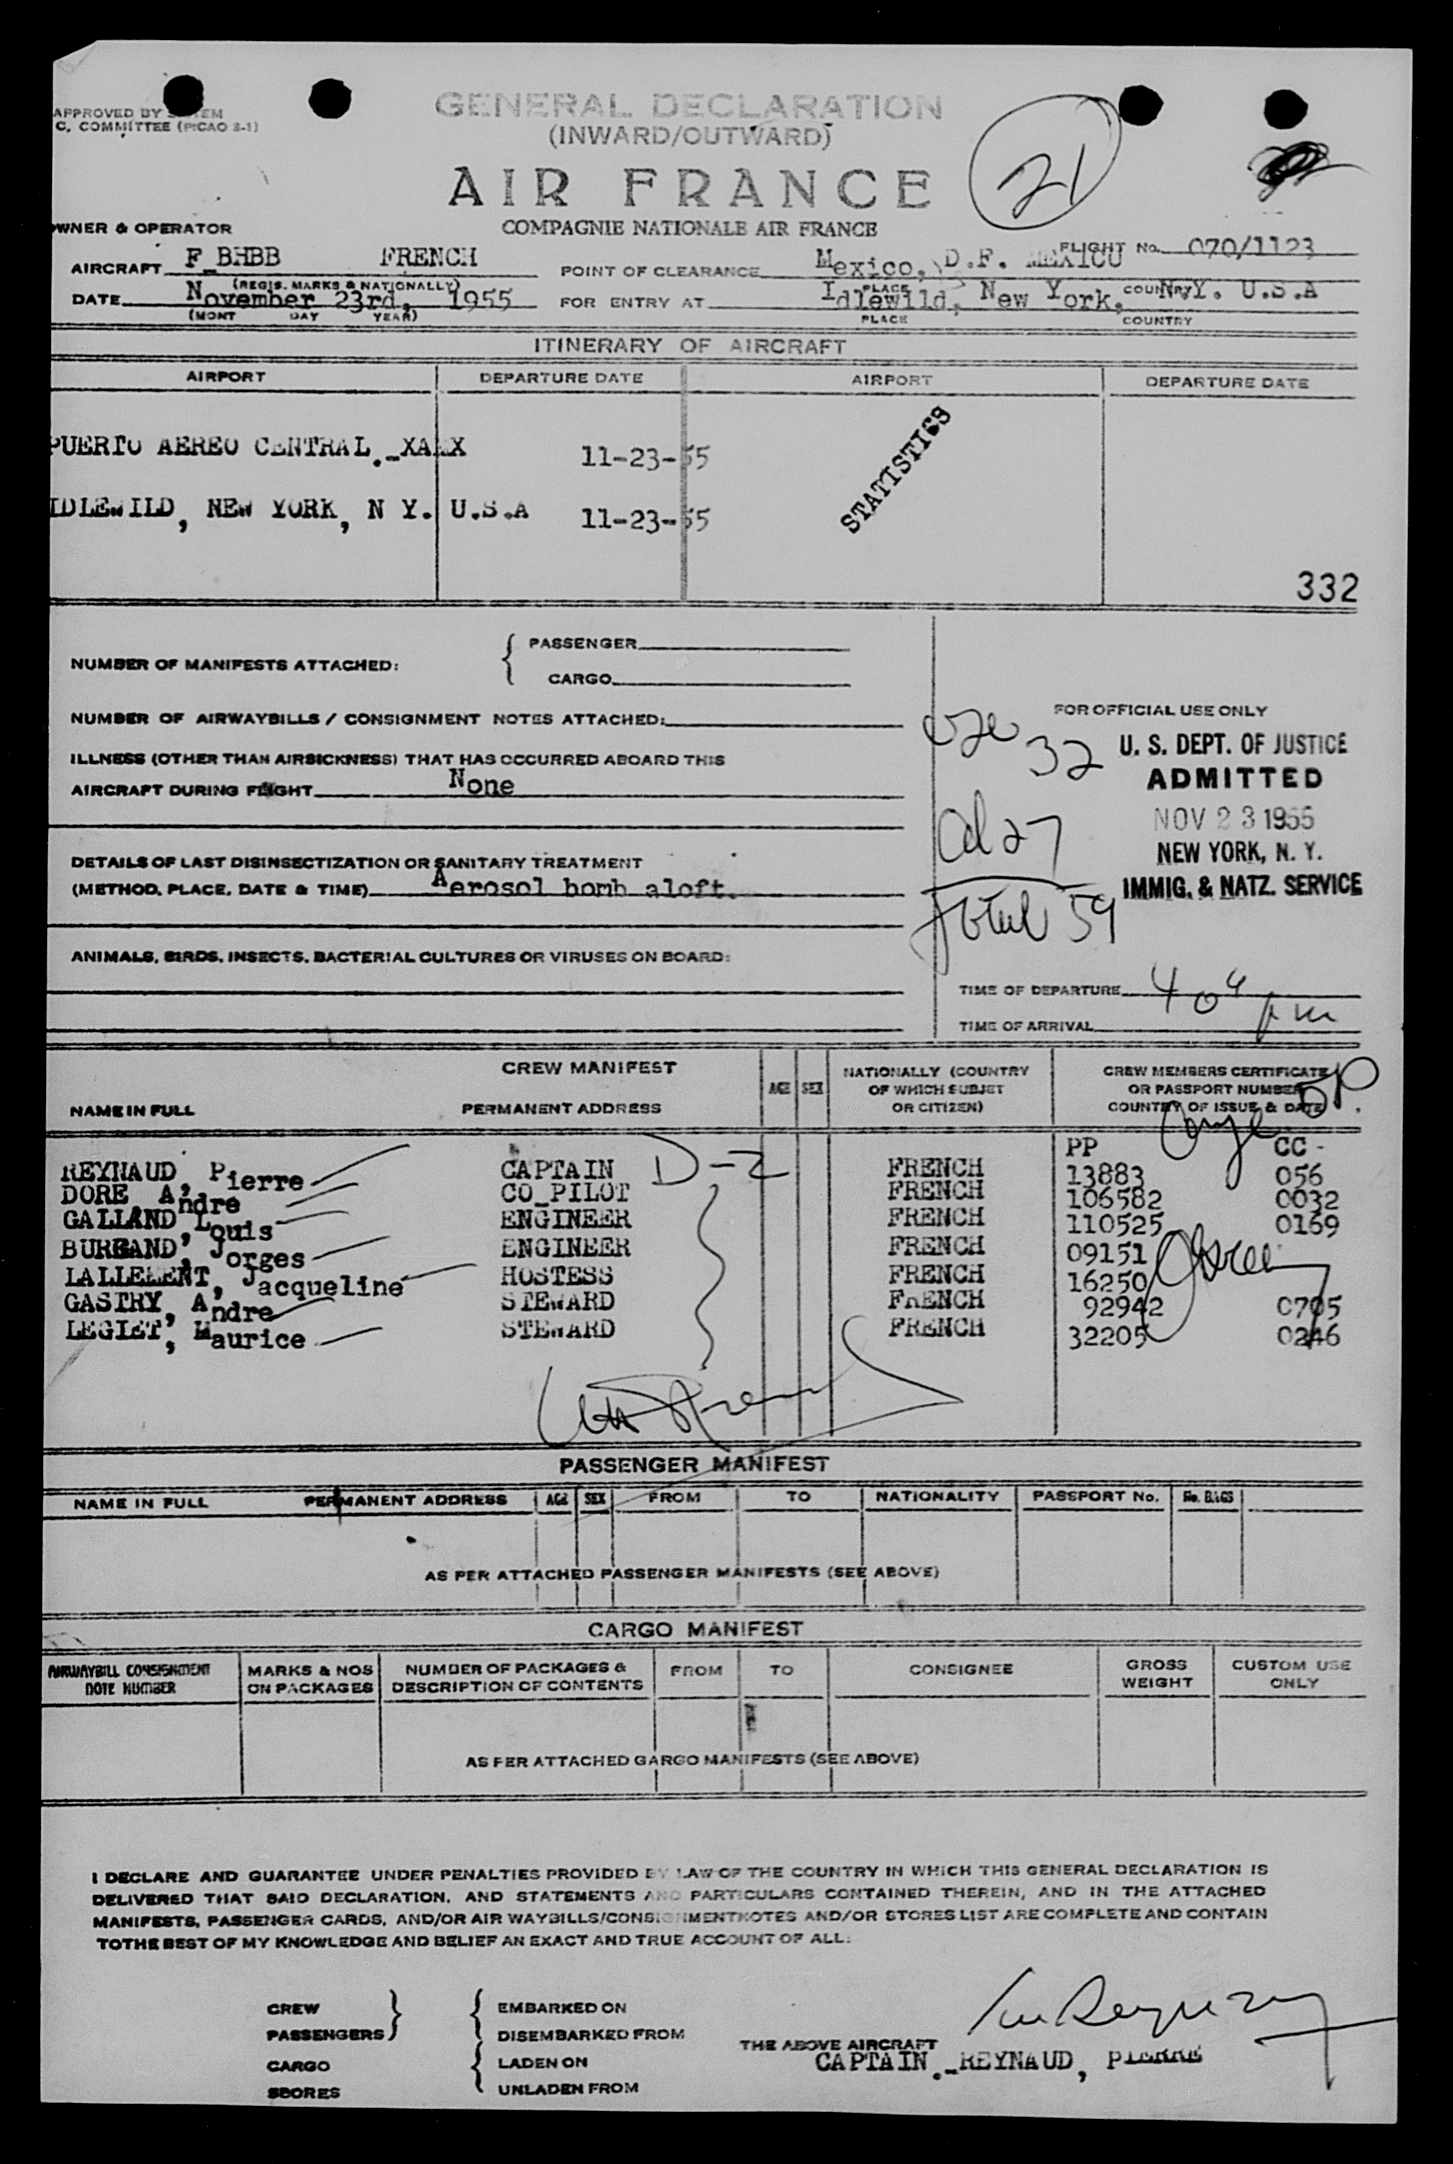 APPROVED BY
C. COMMITTEE (PICAO 2-1)
GENERAL DECLARATION
(INWARD/OUTWARD)
AIR FRANCE
21
COMPAGNIE NATIONALE AIR FRANCE
WNER & OPERATOR
AIRCRAFT F_BHBB FRENCH
(REGIS. MARKS & NATIONALLY)
POINT OF CLEARANCE Mexico, D.F. MEXICO FLIGHT No. 070/1123
PLACE COUNTRY
DATE November 23rd, 1955
FOR ENTRY AT Idlewild, New York, N.Y. U.S.A
(MONT DAY YEAR)
PLACE COUNTRY
ITINERARY OF AIRCRAFT
AIRPORT DEPARTURE DATE AIRPORT DEPARTURE DATE
STATISTICS
PUERTO AEREO CENTRAL._ 11-23-55
IDLEWILD, NEW YORK, N Y. U.S.A 11-23-55
332
NUMBER OF MANIFESTS ATTACHED: { PASSENGER
CARGO
NUMBER OF AIRWAYBILLS / CONSIGNMENT NOTES ATTACHED:
FOR OFFICIAL USE ONLY
32
U. S. DEPT. OF JUSTICE
ADMITTED
NOV 23 1955
NEW YORK, N. Y.
IMMIG. & NATZ. SERVICE
27
Total 59
ILLNESS (OTHER THAN AIRSICKNESS) THAT HAS OCCURRED ABOARD THIS
AIRCRAFT DURING FLIGHT None
DETAILS OF LAST DISINSECTIZATION OR SANITARY TREATMENT
(METHOD, PLACE, DATE & TIME) Aerosol bomb aloft.
ANIMALS, BIRDS, INSECTS, BACTERIAL CULTURES OR VIRUSES ON BOARD:
TIME OF DEPARTURE 4 04 pm
TIME OF ARRIVAL
CREW MANIFEST
NAME IN FULL PERMANENT ADDRESS AGE SEX NATIONALLY (COUNTRY OF WHICH SUBJET OR CITIZEN) CREW MEMBERS CERTIFICATE OR PASSPORT NUMBER COUNTRY OF ISSUE & DATE
PP CC -
REYNAUD, Pierre CAPTAIN D-2 FRENCH 13883 056
DORE Andre CO_PILOT FRENCH 106582 0032
GALLAND, Louis ENGINEER FRENCH 110525 0169
BURGAND, Jorges ENGINEER FRENCH 09151
LALLEMENT, Jacqueline HOSTESS FRENCH 16250
GASTRY, Andre STEWARD FRENCH 92942 0705
LEGIET, Maurice STEWARD FRENCH 32205 0246
PASSENGER MANIFEST
NAME IN FULL PERMANENT ADDRESS AGE SEX FROM TO NATIONALITY PASSPORT No. No. BAGS
AS PER ATTACHED PASSENGER MANIFESTS (SEE ABOVE)
CARGO MANIFEST
AIRWAYBILL CONSIGNMENT NOTE NUMBER MARKS & NOS ON PACKAGES NUMBER OF PACKAGES & DESCRIPTION OF CONTENTS FROM TO CONSIGNEE GROSS WEIGHT CUSTOM USE ONLY
AS PER ATTACHED CARGO MANIFESTS (SEE ABOVE)
I DECLARE AND GUARANTEE UNDER PENALTIES PROVIDED BY LAW OF THE COUNTRY IN WHICH THIS GENERAL DECLARATION IS
DELIVERED THAT SAID DECLARATION, AND STATEMENTS AND PARTICULARS CONTAINED THEREIN, AND IN THE ATTACHED
MANIFESTS, PASSENGER CARDS, AND/OR AIR WAYBILLS/CONSIGNMENTNOTES AND/OR STORES LIST ARE COMPLETE AND CONTAIN
TOTHE BEST OF MY KNOWLEDGE AND BELIEF AN EXACT AND TRUE ACCOUNT OF ALL:
CREW } { EMBARKED ON
PASSENGERS DISEMBARKED FROM
THE ABOVE AIRCRAFT
CARGO { LADEN ON
CAPTAIN._REYNAUD, PIERRE
SCORES UNLADEN FROM